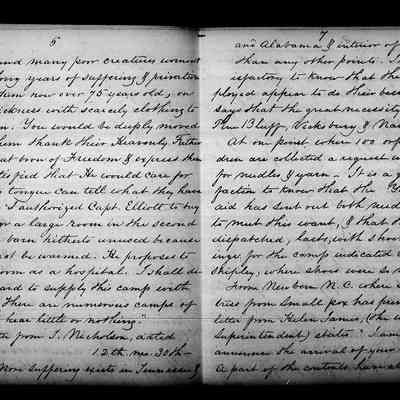 5
and many poor creatures worn out
long years of suffering & privation
them now over 75 years old, on
sickness with scarcely clothing to
. You would be deeply moved
them thank their Heavenly Father
that born of Freedom & express them
satisfied that He would care for
tongue can tell what they have
I authorized Capt. Elliott to buy
for a large room in the second
barn hitherto unused because
not be warmed. He proposes to
room as a hospital. I shall de
and to supply this camp with
There are numerous camps of
hear little or nothing."
from T. Nicholson, dated
12th mo. 30th
More suffering exists in Tennessee &
7
and Alabama & interior of
than any other points.
isfactory to know that the
ployed appear to do their best
says that the great necessity
Pine Bluff, Vicksburg & Na
At one point where 100 or
dren are collected a request w
for needles & yarn. It is a
faction to know that the
aid has sent out both need
to meet this want, & that
dispatched, hacks, with shoe
ings for the camp indicated
Shipley, where shoes were so
From Newbern N.C. where
tress from Small pox has
letter from Helen James, (the
Superintendent) states: "I am
announce the arrival of your
A part of the contents have al